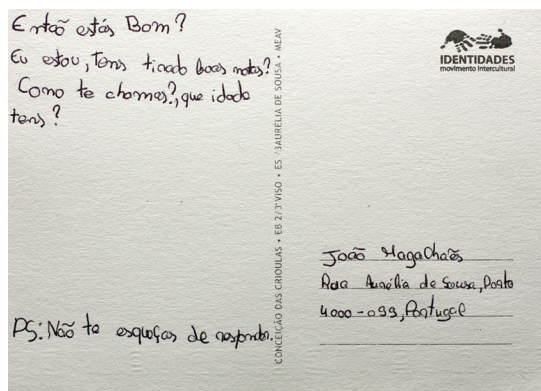 Então estás Bom?
Eu estou, Tens tirado boas notas?
Como te chamas?, que idade
tens?
PS: Não te esqueças de responder.
CONCEIÇÃO DAS CRIOULAS • EB 2/3 VISO • ES /3 AURÉLIA DE SOUSA • MEAV
IDENTIDADES
movimento intercultural
João Magalhães
Rua Aurélia de Sousa, Porto
4000-099, Portugal